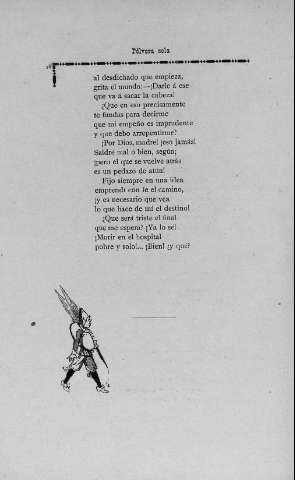 Pólvora sola
al desdichado que empieza,
grita el mundo:—¡Darle á ese
que va á sacar la cabeza!
¿Que en eso precisamente
te fundas para decirme
que mi empeño es imprudente
y que debo arrepentirme?
¡Por Dios, madre! ¡eso jamás!
Saldré mal ó bien, según;
¡pero el que se vuelve atrás
es un pedazo de atún!
Fijo siempre en una idea
emprendí con fe el camino,
¡y es necesario que vea
lo que hace de mí el destino!
¿Que será triste el final
que me espera? ¡Ya lo sé!
¡Morir en el hospital
pobre y solo!... ¡Bien! ¿y qué?